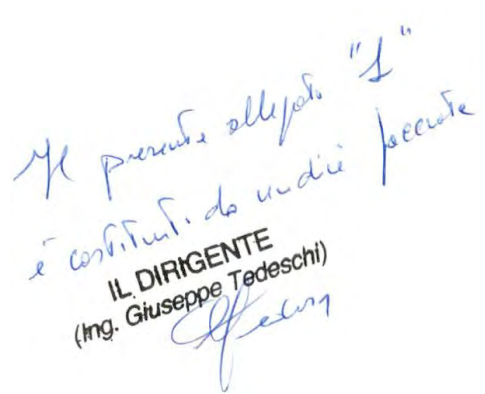 Il presente allegato "1"
è costituito da undici facciate
IL DIRIGENTE
(Ing. Giuseppe Tedeschi)